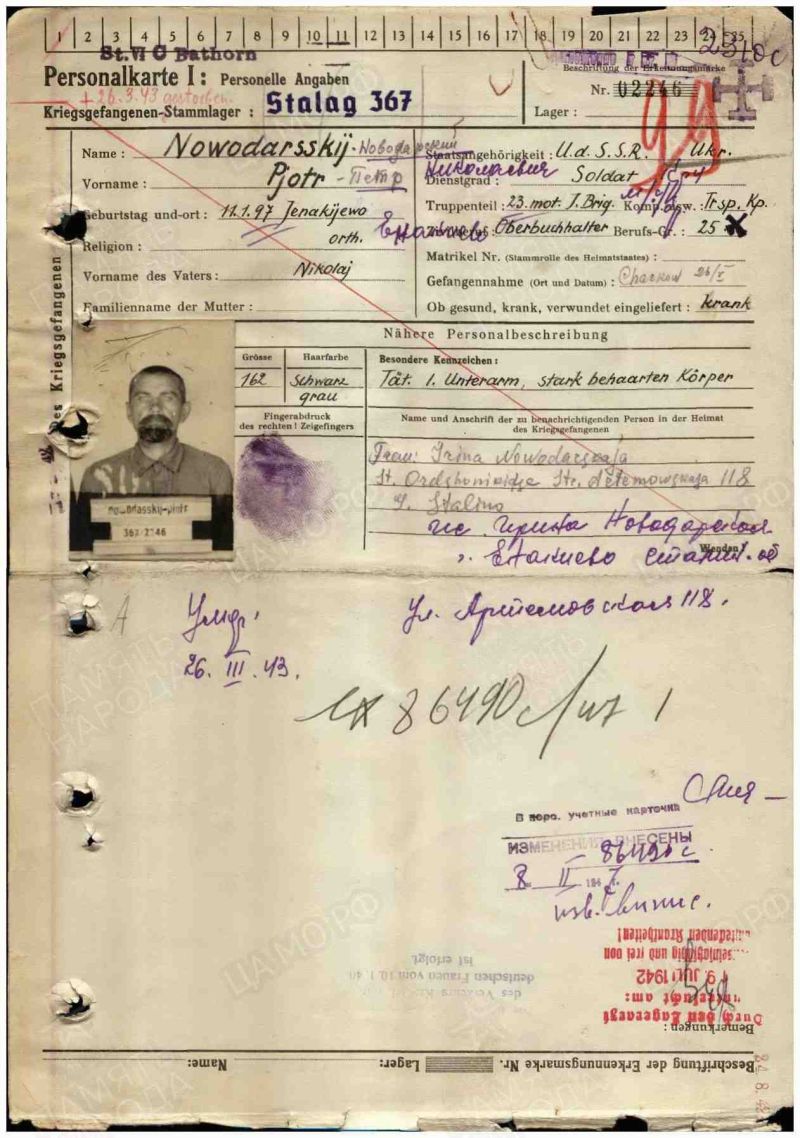 1 2 3 4 5 6 7 8 9 10 11 12 13 14 15 16 17 18 19 20 21 22 23 24 25
St. VI C Bathorn
Personalkarte I: Personelle Angaben
Beschriftung der Erkennungsmarke
Nr. 02246
+ 26.3.43 gestorben.
Kriegsgefangenen-Stammlager: Stalag 367
Lager:
Name: Nowodarsskij - Новодарский
Staatsangehörigkeit: U.d.S.S.R. Ukr.
Николаевич
Vorname: Pjotr - Петр
Dienstgrad: Soldat
Geburtstag und -ort: 11.1.97 Jenakijewo
Truppenteil: 23. mot. J. Brig. Komp. usw.: Trsp. Kp.
Енакиево
Religion: orth.
Zivilberuf: Oberbuchhalter Berufs-Gr.: 25
Matrikel Nr. (Stammrolle des Heimatstaates):
Vorname des Vaters: Nikolaj
Gefangennahme (Ort und Datum): Charkow 26/V
Familienname der Mutter:
Ob gesund, krank, verwundet eingeliefert: krank
des Kriegsgefangenen
Nähere Personalbeschreibung
Grösse
Haarfarbe
Besondere Kennzeichen:
162
Schwarz grau
Tät. l. Unterarm, stark behaarten Körper
Fingerabdruck
des rechten! Zeigefingers
Name und Anschrift der zu benachrichtigenden Person in der Heimat
des Kriegsgefangenen
Frau: Irina Nowodarskaja
St. Ordshonikidse Str. 118
Stalino
nowodarsskij-piotr
367 2246
Ирина Новодарская
Wenden!
Енакиево
ул. Артемовская 118.
A
Умер.
26.III.43.
86490с
1
В перс. учетные карточки
ИЗМЕНЕНИЯ ВНЕСЕНЫ
86490с
8 II 194
Bemerkungen:
Durch den Lagerarzt
untersucht am:
9. Juli 1942
und frei von
ansteckenden Krankheiten!
des Verkehrs
deutschen Frauen vom 10.1.40
ist erfolgt.
Beschriftung der Erkennungsmarke Nr.
Lager:
Name: